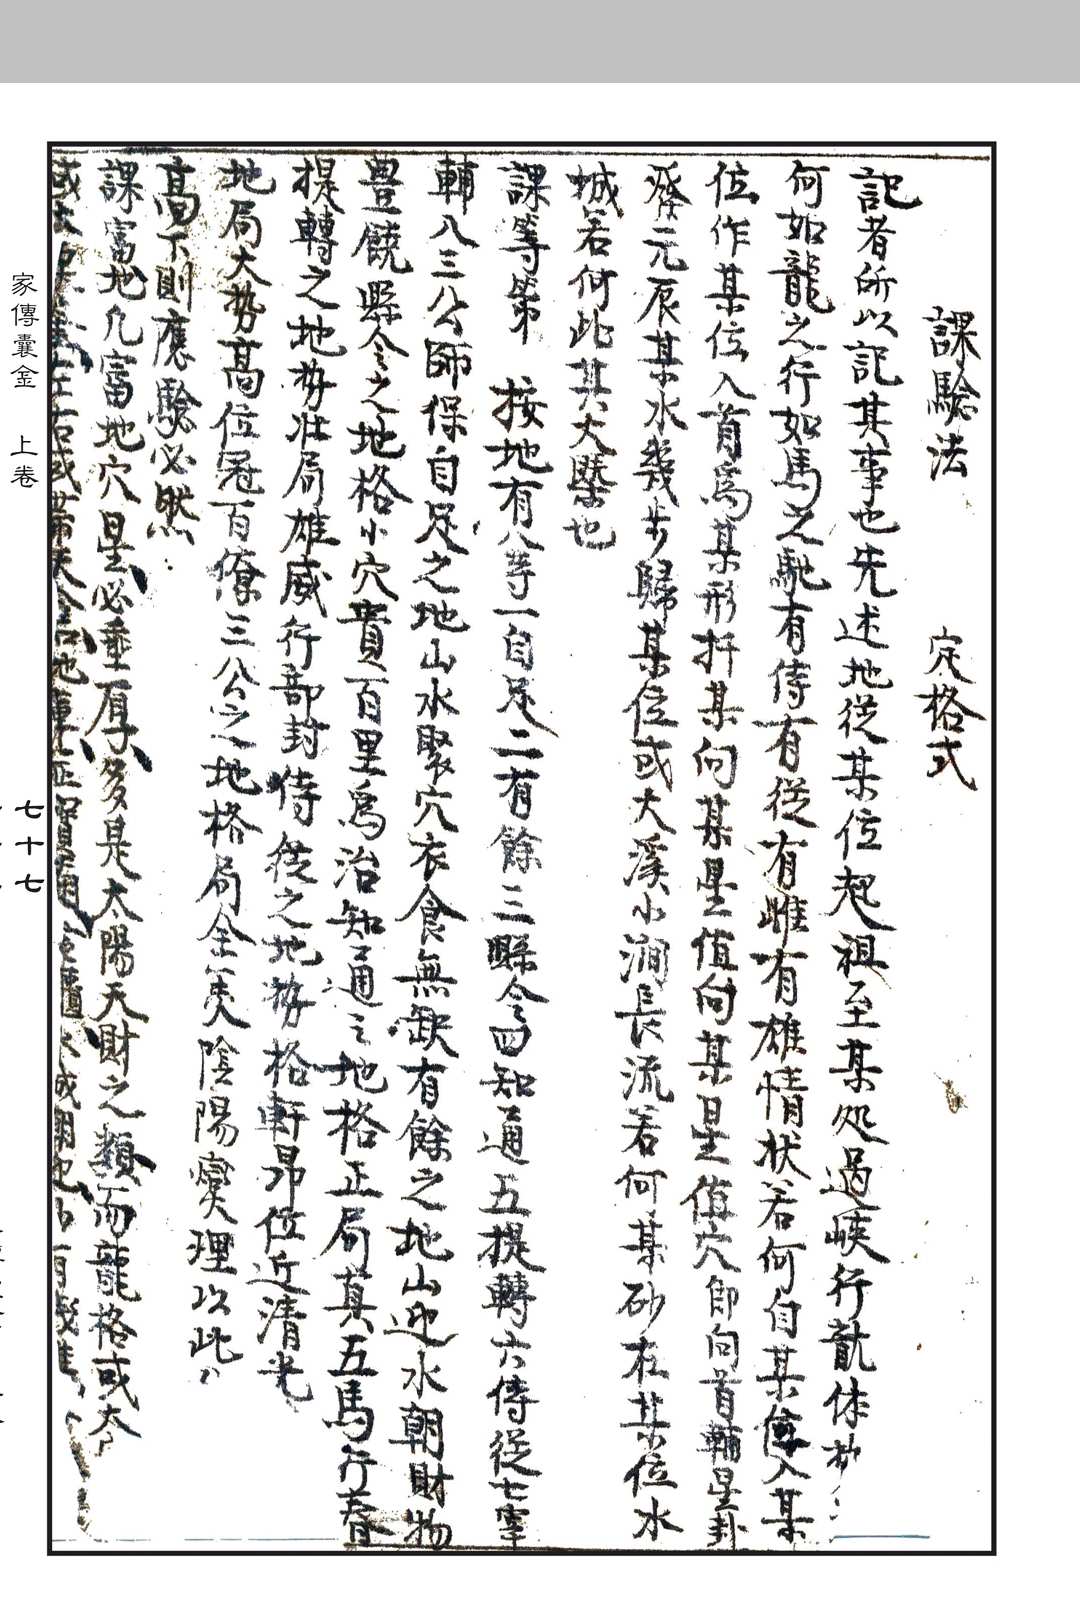 課驗法　定格式
記者所以記其事也先述地從某位起祖至某処過峽行龍体
何如龍之行如馬之馳有侍有從有雌有雄情狀若何自某位入某
位作某位入首為某形扦某向某星值向某星值穴即向首輔星卦
癸元辰某水幾步歸某位或大溪小澗長流若何某砂在某位水
城若何此其大槩也
課等第　按地有八等一自足二有餘三縣令四知通五提轉六侍從七宰
輔八三公師保自足之地山水聚穴衣食無缺有餘之地山迎水朝財物
豊饒縣令之地格小穴貴百里為治知通之地格正局真五馬行春
提轉之地势壮局雄威行部封侍從之地势格軒昂位近清光
地局大势高位冠百僚三公之地格局全美陰陽燮理以此
高下則應驗必然
課富地凡富地穴星必垂厚多是太陽天財之類而龍格或
家傳囊金　上卷
七十七